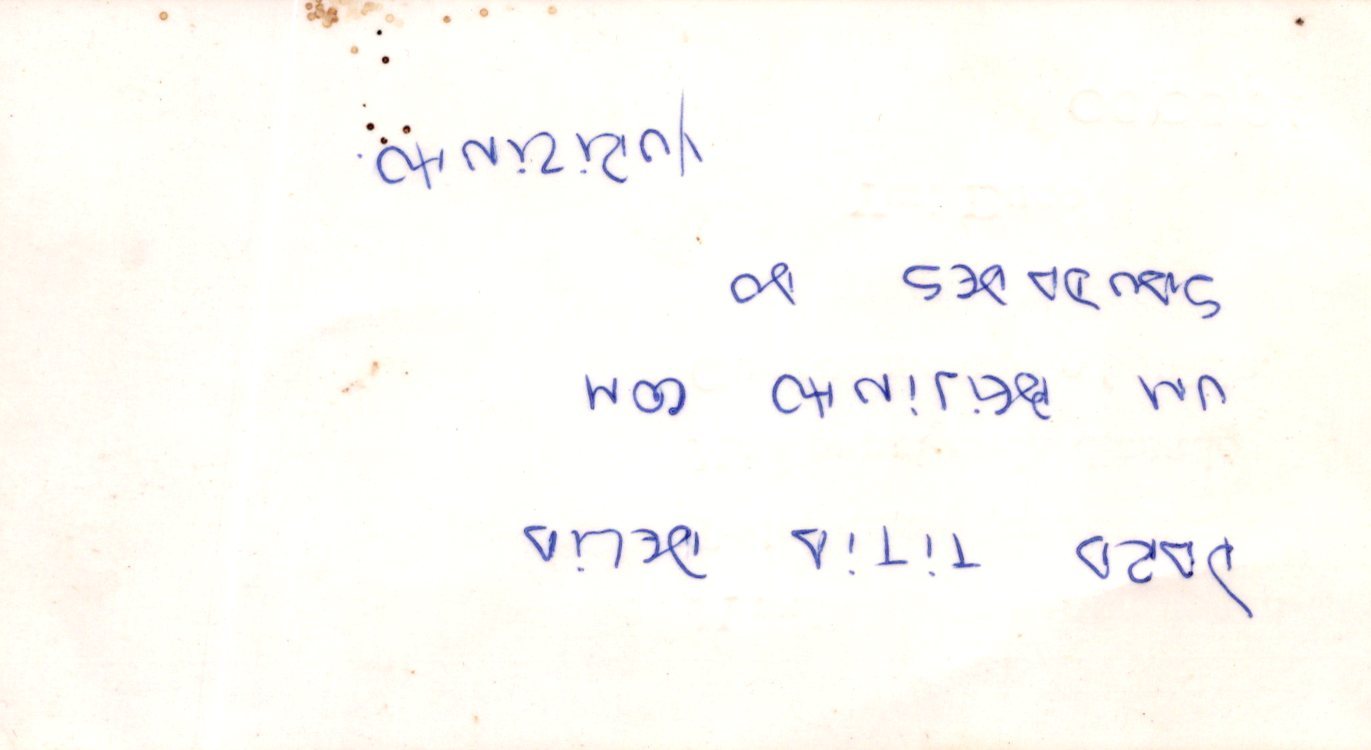 PARA TITIA DELIA
UM BEIJINHO COM
SAUDADES DO
YURIZINHO.